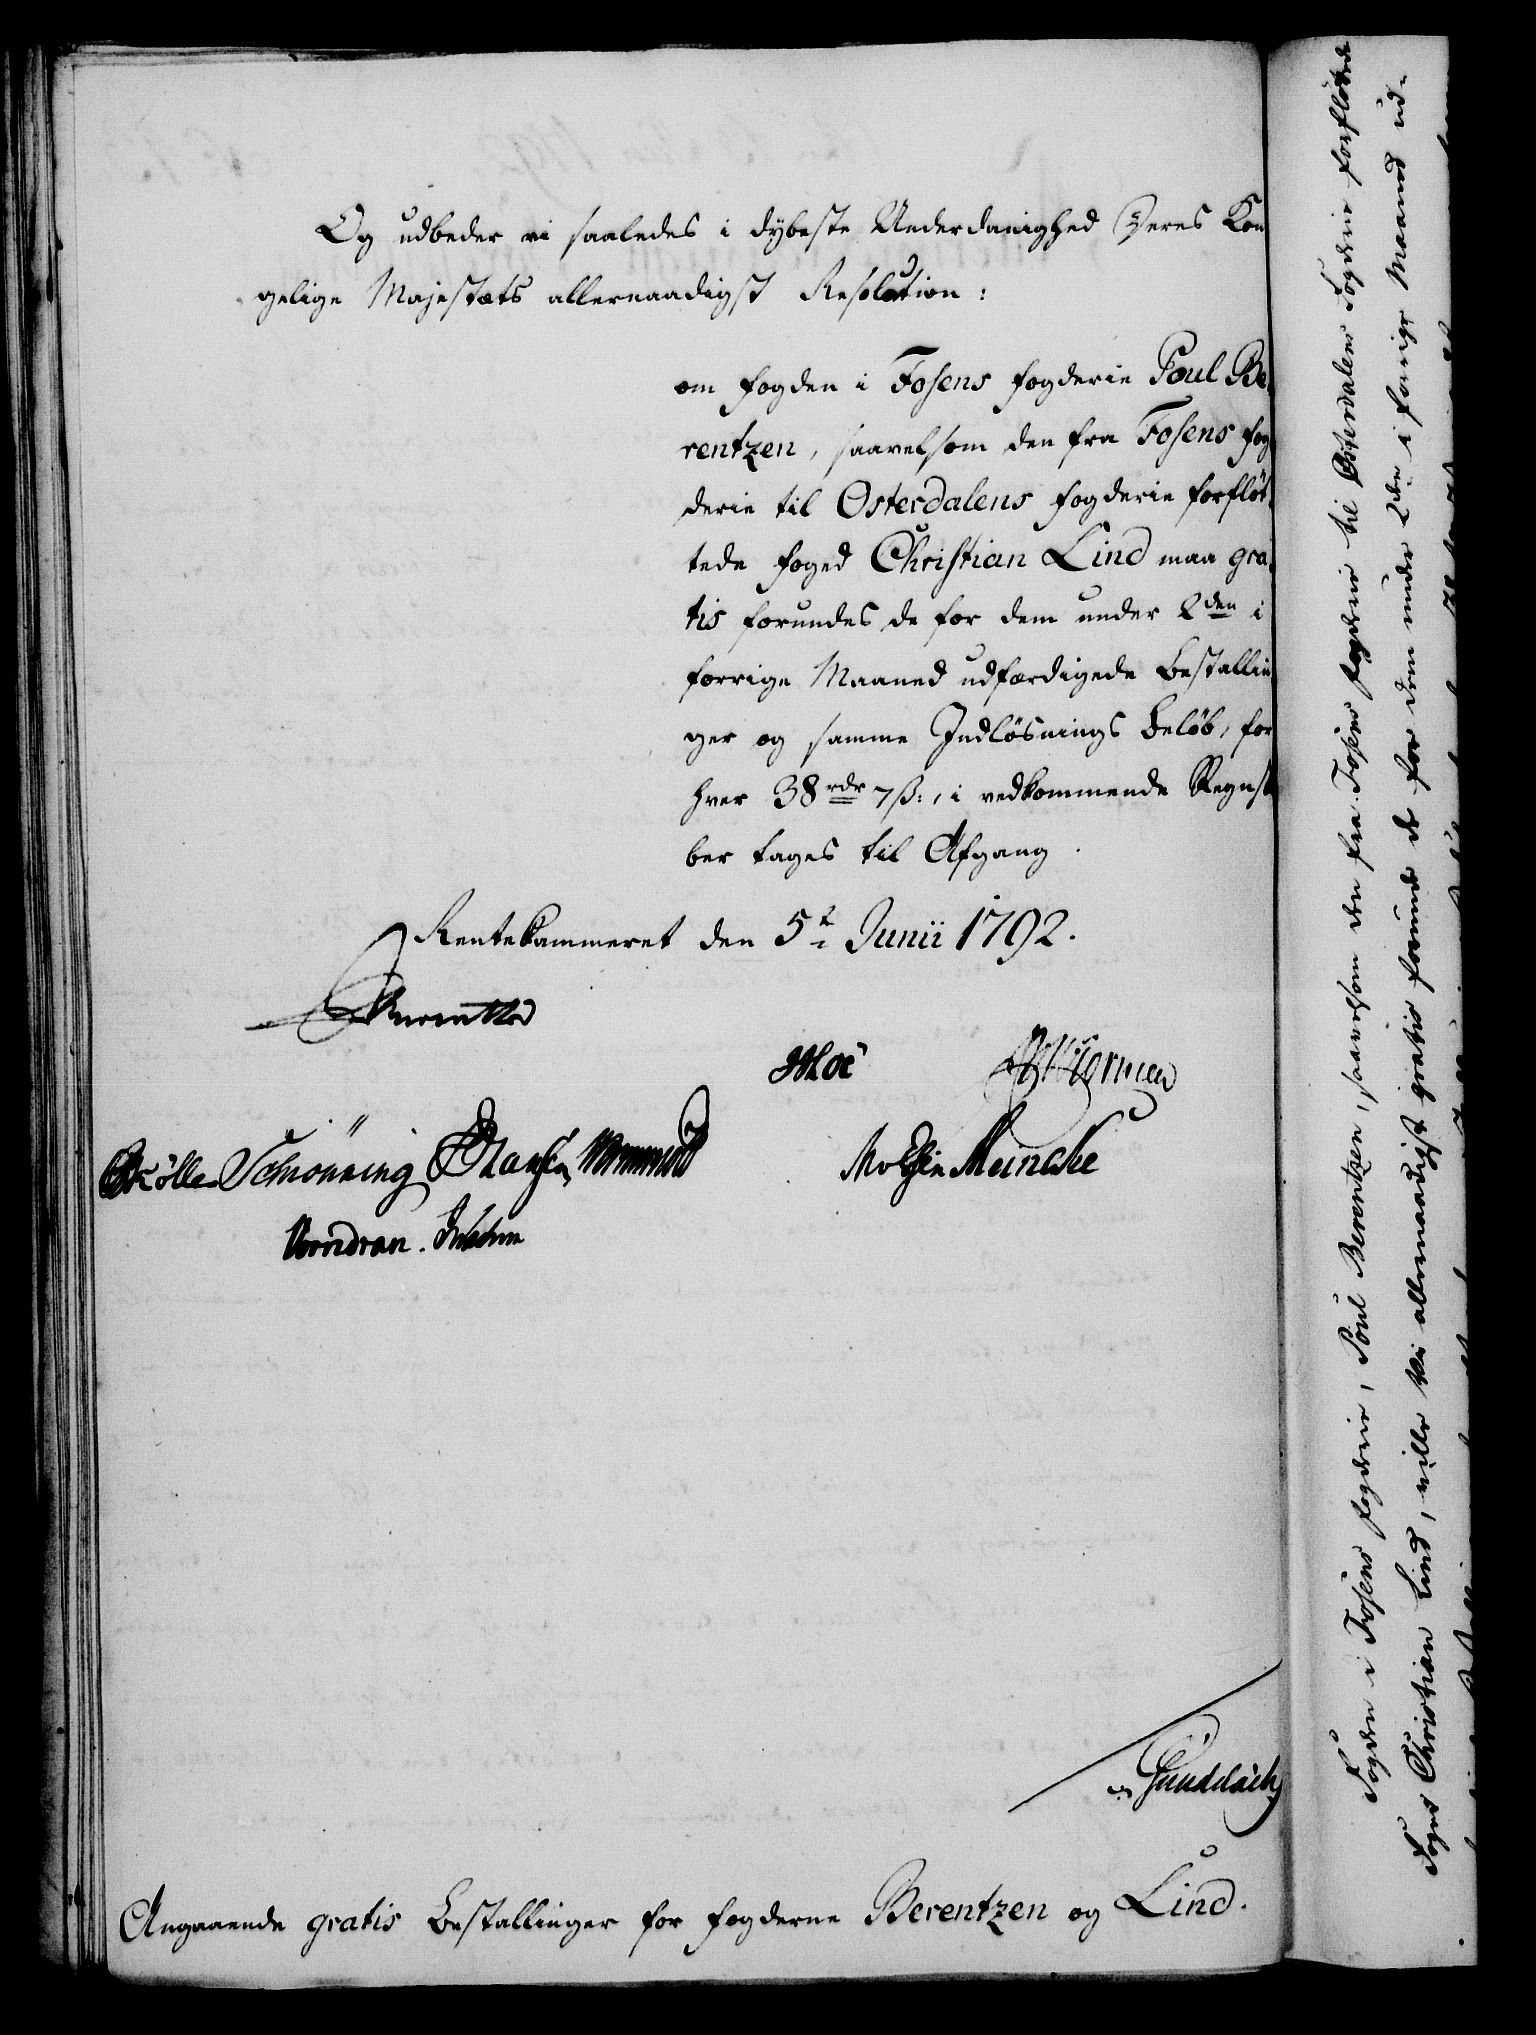 Og udbeder vi saaledes i dybeste Underdanighed Deres Kon
gelige Majestæts allernaadigst Resolution:
om Fogden i Fosens Fogderie Poul Be,
rentzen, saavelsom den fra Fosens Fog
derie til Østerdalens Fogderie forflöt,
tede Foged Christian Lind maa gra,
tis forundes de for dem under 2den i
forrige Maaned udfærdigede Bestallin
ger og samme Indlösnings Beløb, for
hver 38 rdr 7 ß:, i vedkommende Regnsk
ber tages til Afgang.
Rentekammeret den 5t Junii 1792.
JMoe
Schiönning Hansen Wormskiold
Meincke
Vorndran.
Angaaende gratis Bestallinger for Fogderne Berentzen og Lind.
Fogden i Fosens Fogderie, Poul Berentzen, saavelsom den fra Fosens Fogderie til Østerdalens Fogderie forflöttede
Foged Christian Lind, ville Vi allernaadigst gratis forunde de for dem under 2den i forrige Maaned ud-